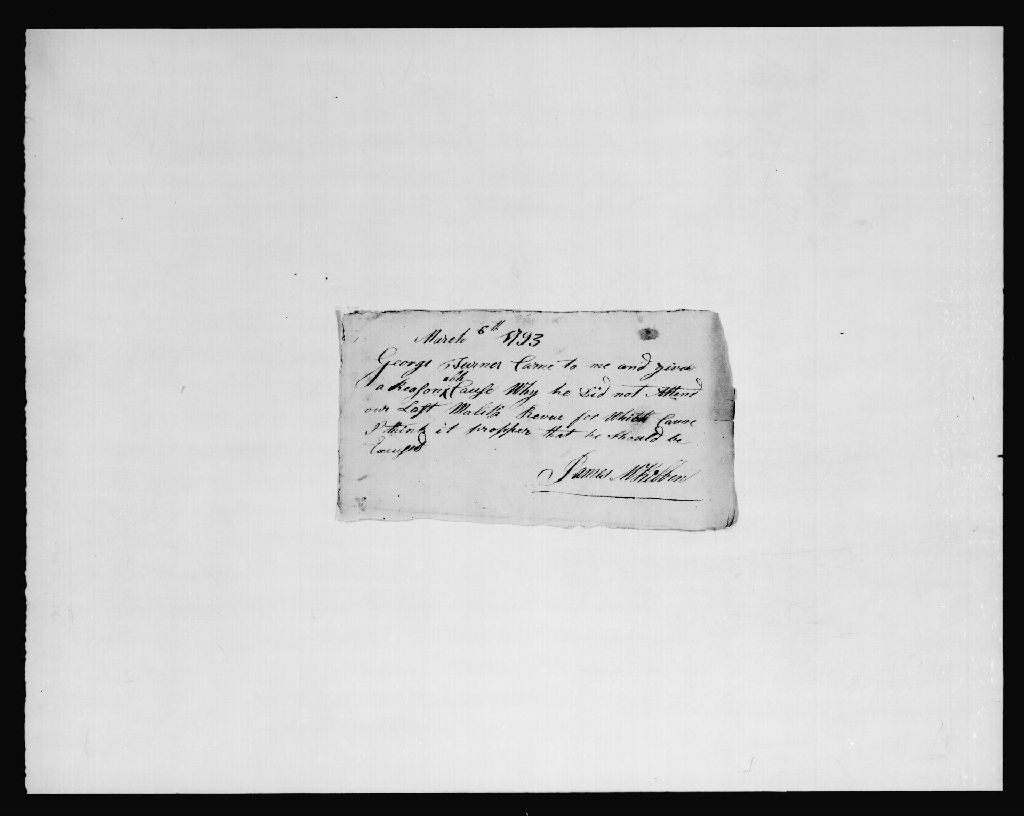 March 6th 1793
George Turner Came to me and give
a Reason able Cause Why he Did not Attend
our Last Malita Revue for Which Cause
I think it propper that he should be
James McKibben